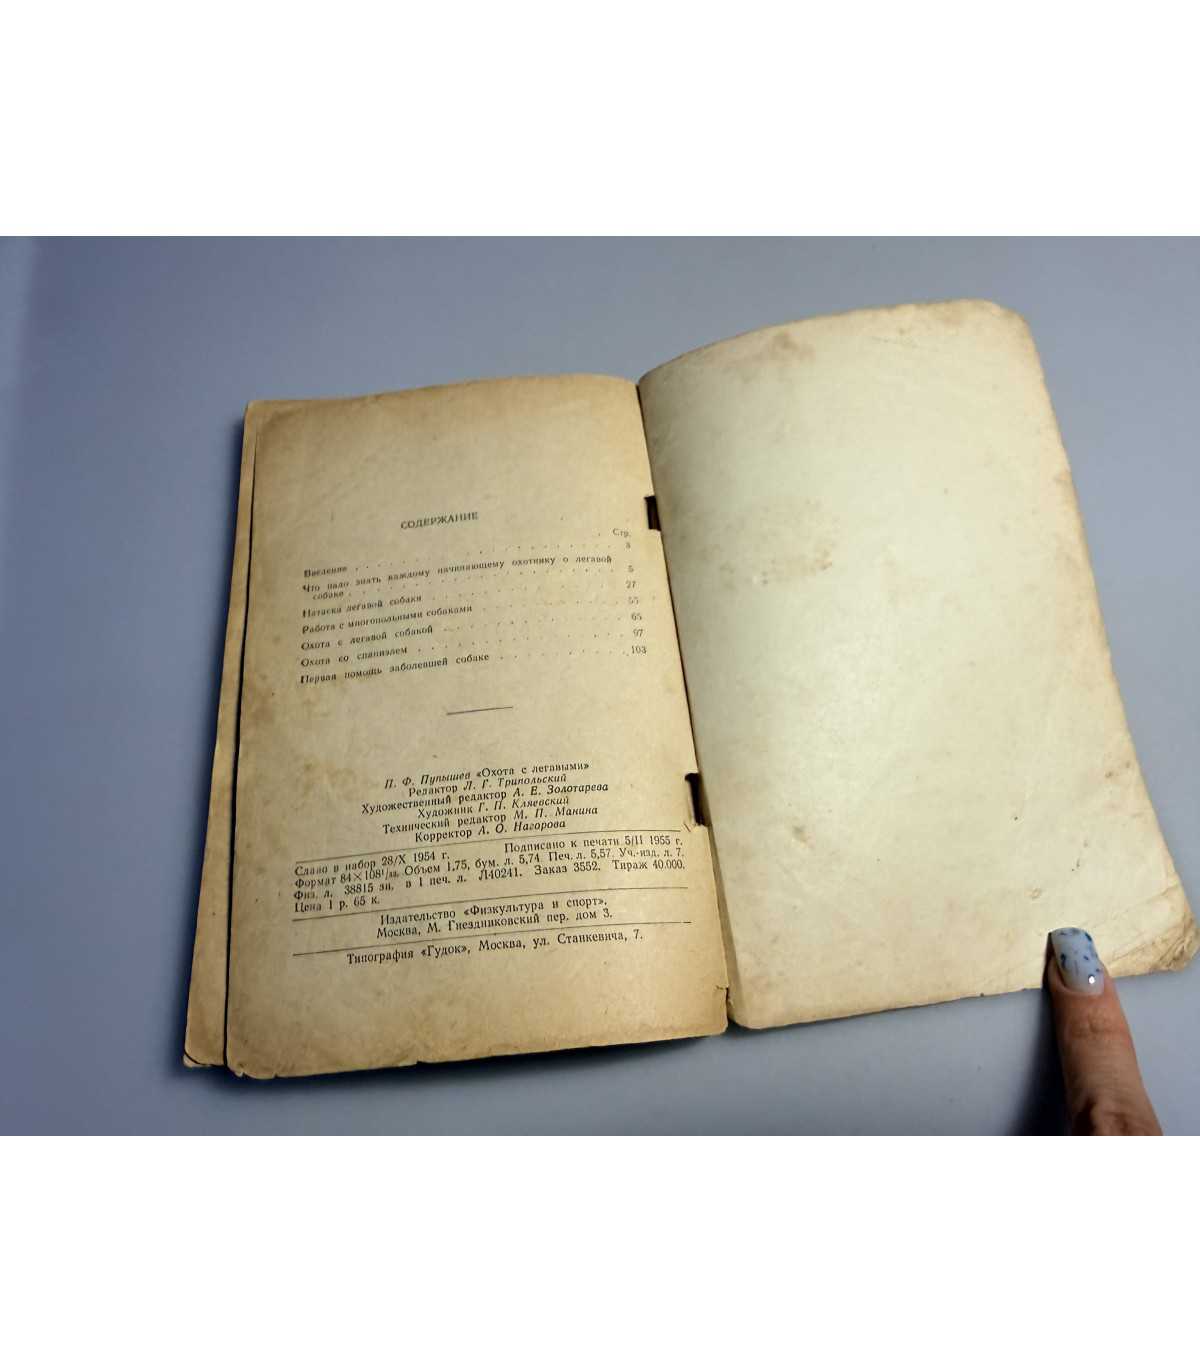 СОДЕРЖАНИЕ
Стр.
Введение . . . . . . . . . . . . . . . 3
Что надо знать каждому начинающему охотнику о легавой
собаке . . . . . . . . . . . . . . . 5
Натаска легавой собаки . . . . . . . . . . . 27
Работа с многопольными собаками . . . . . . . . 55
Охота с легавой собакой . . . . . . . . . . . 65
Охота со спаниэлем . . . . . . . . . . . . 97
Первая помощь заболевшей собаке . . . . . . . . 103
П. Ф. Пупышев «Охота с легавыми»
Редактор Л. Г. Трипольский
Художественный редактор А. Е. Золотарева
Художник Г. П. Кляевский
Технический редактор М. П. Манина
Корректор А. О. Нагорова
Сдано в набор 28/X 1954 г. Подписано к печати 5/II 1955 г.
Формат 84×108¹/₃₂. Объем 1,75, бум. л. 5,74. Печ. л. 5,57. Уч.-изд. л. 7.
Физ. л. 38815 зн. в 1 печ. л. Л40241. Заказ 3552. Тираж 40.000.
Цена 1 р. 65 к.
Издательство «Физкультура и спорт».
Москва, М. Гнездниковский пер. дом 3.
Типография «Гудок», Москва, ул. Станкевича, 7.